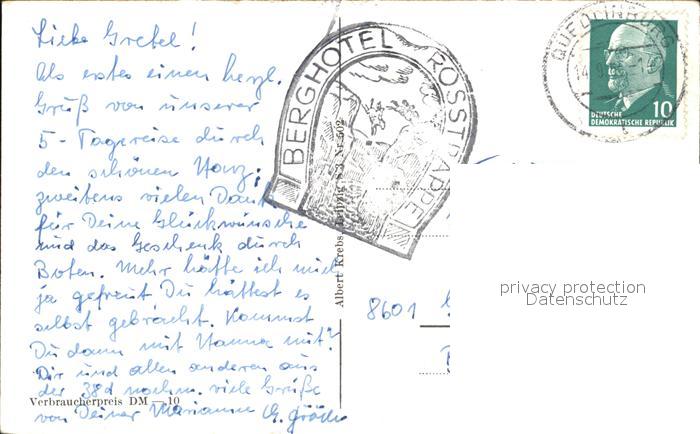 Liebe Gretel!
Als erstes einen herzl.
Gruß von unserer
5-Tagereise durch
den schönen Harz,
zweitens vielen Dank
für Deine Glückwünsche
und das Geschenk durch
Boten. Mehr hätte ich mich
ja gefreut Du hättest es
selbst gebracht. Kommst
Du dann mit Hanna mit?
Dir und allen anderen aus
der 38d nochm. viele Grüße
von Deiner Marianne
Verbraucherpreis DM —.10
Albert Krebs, Leipzig S 3
BERGHOTEL ROSSTRAPPE
QUEDLINBURG
10
DEUTSCHE
DEMOKRATISCHE REPUBLIK
privacy protection
Datenschutz
8601